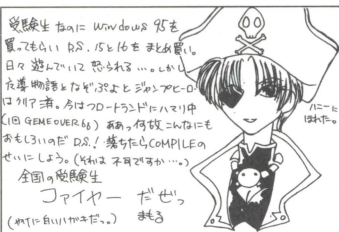 受験生なのに Windows 95を
買ってもらい D.S. 15と16を まとめ買い。
日々 遊んでいて 怒られる…。しかし
魔導物語となぞぷよとジャンプヒーロー
はクリア済。今はフロートランドにハマリ中
(1回 GEMEOVER 66) ああっ何故こんなにも
おもしろいのだ D.S.! 落ちたらCOMPILEの
せいにしよう。(それは 不可ですか…。)
全国の受験生
ファイヤー だぜっ
(やけに白いハガキだっ。) まもる
ハニーに
ほれた。